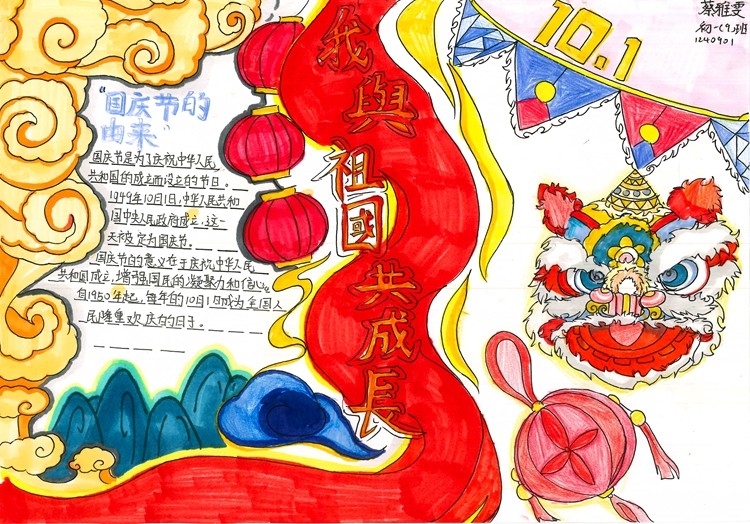 蔡雅雯
初一(9)班
1240901
10.1
我與祖國共成長
"国庆节的
由来"
国庆节是为了庆祝中华人民
共和国的成立而设立的节日。
1949年10月1日,中华人民共和
国中央人民政府成立,这一
天被定为国庆节。
国庆节的意义在于庆祝中华人民
共和国成立,增强国民的凝聚力和信心。
自1950年起,每年的10月1日成为全国人
民隆重欢庆的日子。